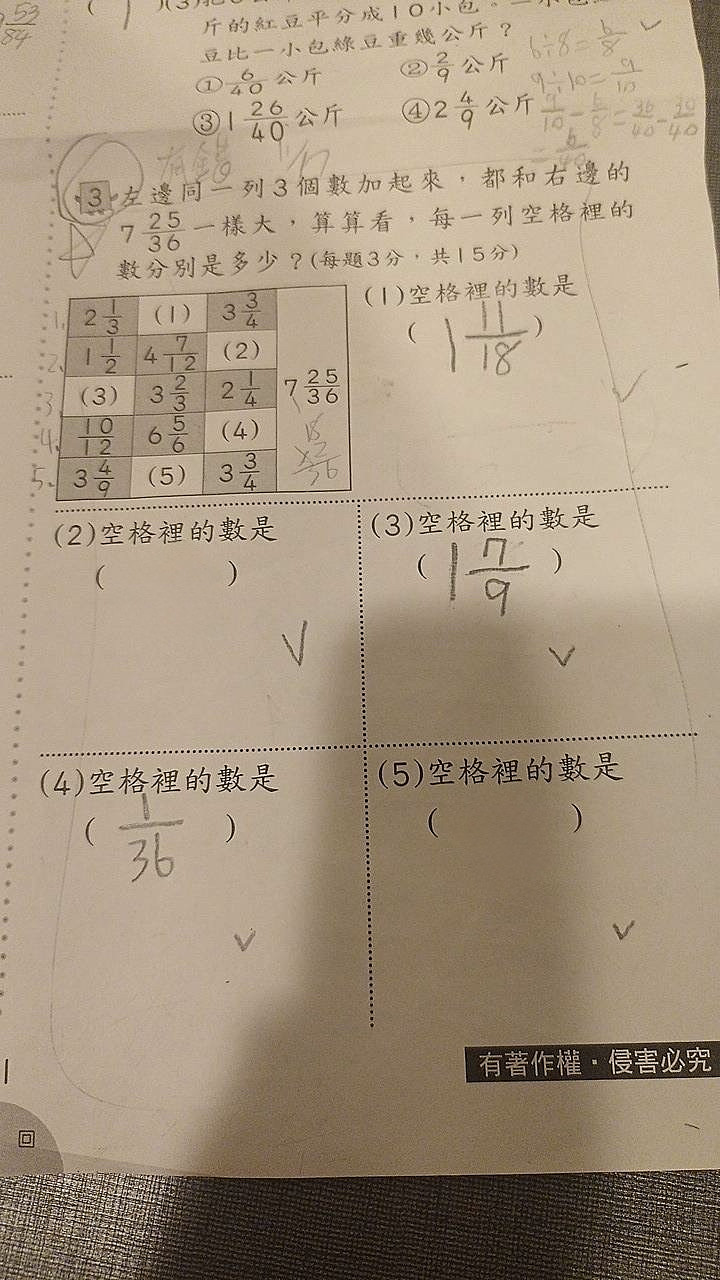 斤的紅豆平分成10小包。一小包
豆比一小包綠豆重幾公斤？
①6/40公斤 ②2/9公斤
③1 26/40公斤 ④2 4/9公斤
6÷8=6/8
9÷10=9/10
有錯
3 左邊同一列3個數加起來，都和右邊的
7 25/36一樣大，算算看，每一列空格裡的
數分別是多少？(每題3分，共15分)
1. 2 1/3 (1) 3 3/4
2. 1 1/2 4 7/12 (2)
3. (3) 3 2/3 2 1/4 7 25/36
4. 10/12 6 5/6 (4)
5. 3 4/9 (5) 3 3/4
(1)空格裡的數是
( 1 11/18 )
(2)空格裡的數是
( )
(3)空格裡的數是
( 1 7/9 )
(4)空格裡的數是
( 1/36 )
(5)空格裡的數是
( )
有著作權・侵害必究
回